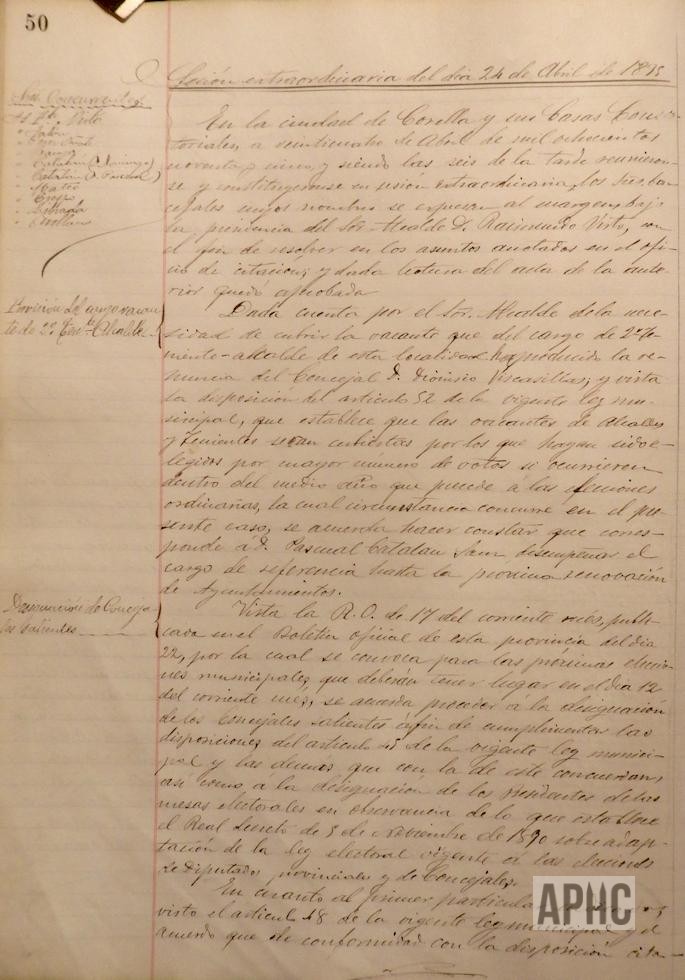 50
Sesión extraordinaria del dia 24 de Abril de 1895
Sres. Concurrentes
Virto
Catalan (Domingo)
Catalan (Pascual)
Mateo
En la ciudad de Corella y sus Casas Consis-
toriales, a veinticuatro de Abril de mil ochocientos
noventa y cinco, y siendo las seis de la tarde reunieron-
se y constituyeronse en sesión extraordinaria, los Sres. Con-
cejales cuyos nombres se expresan al margen, bajo
la presidencia del Sor. Alcalde D. Raimundo Virto, con
el fin de resolver en los asuntos anotados en el ofi-
cio de citación; y dada lectura del acta de la ante-
rior quedó aprobada
Provisión del cargo vacan
te de 2º Tente Alcalde
Dada cuenta por el Sor. Alcalde de la nece-
sidad de cubrir la vacante que del cargo de 2º Te-
niente-alcalde de esta localidad ha producido la re-
nuncia del Concejal D. Dionisio Viscasillas, y vista
la disposición del articulo 52 de la vigente ley mu-
nicipal, que establece que las vacantes de Alcaldes
y Tenientes sean cubiertas por los que hayan sido e-
legidos por mayor número de votos si ocurrieren
dentro del medio año que precede á las elecciones
ordinarias, la cual circunstancia concurre en el pre-
sente caso, se acuerda hacer constar que corres-
ponde á D. Pascual Catalan desempeñar el
cargo de referencia hasta la proxima renovación
de Ayuntamientos.
Designación de Conceja
les salientes
Vista la R. O. de 17 del corriente mes, publi-
cada en el Boletin oficial de esta provincia del dia
22, por la cual se convoca para las próximas eleccio-
nes municipales, que deberán tener lugar en el dia 12
del corriente mes, se acuerda proceder a la designación
de los concejales salientes á fin de cumplimentar las
disposiciones del articulo 45 de la vigente ley munici-
pal y las demas que con la de este concuerdan,
así como á la designación de los Presidentes de las
mesas electorales en observancia de lo que establece
el Real decreto de 5 de Noviembre de 1890 sobre adap-
tación de la ley electoral vigente á las elecciones
de Diputados provinciales y de Concejales.
En cuanto al primer particular
visto el articulo 48 de la vigente ley municipal y el
acuerdo que de conformidad con la disposición cita-
APHC